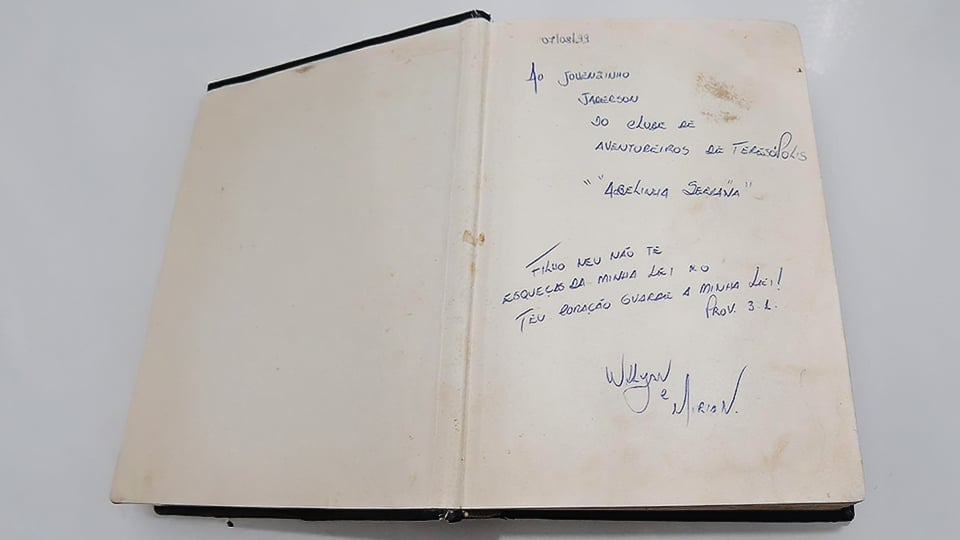 07/08/99
Ao Jovenzinho
Jaderson
Do Clube de
Aventureiros de Teresópolis
" "Abelinha Serrana" "
Filho meu não te
esqueças da minha lei e o
Teu coração guarde a minha lei!
Prov. 3.1.
Willyan
e
Mirian.